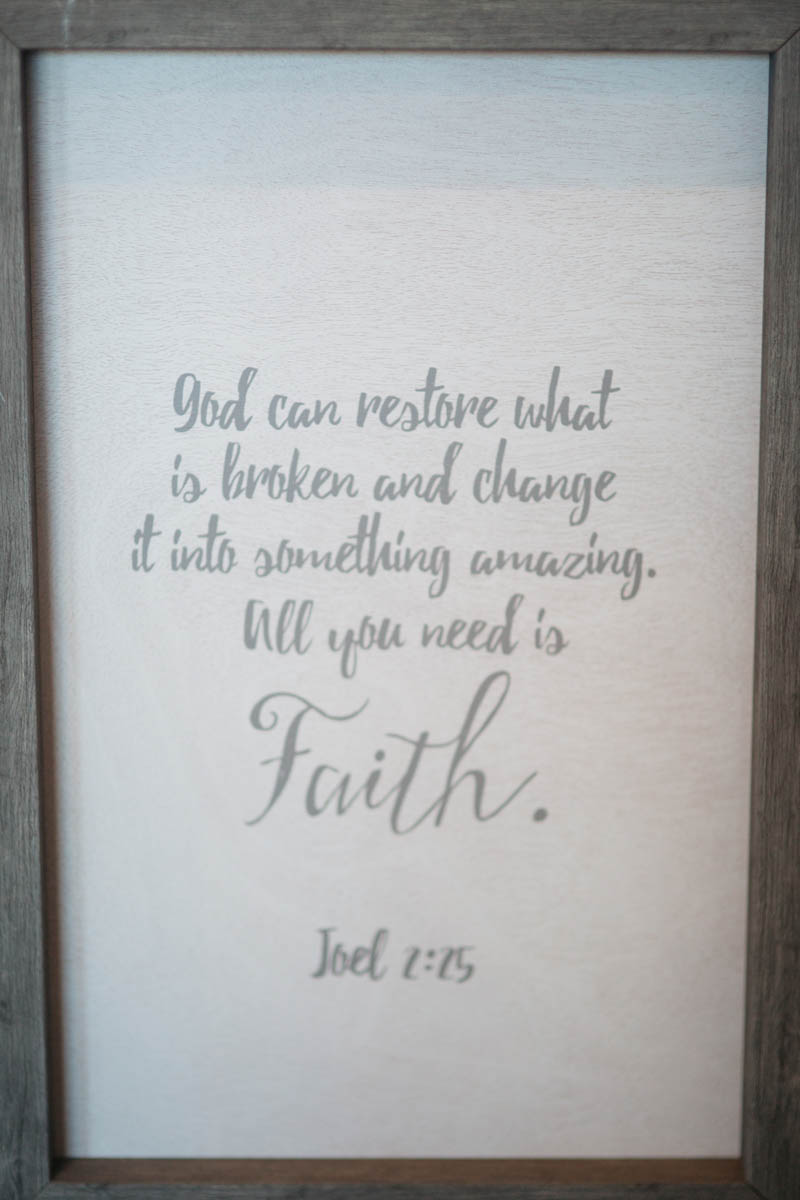 God can restore what
is broken and change
it into something amazing.
All you need is
Faith.
Joel 2:25